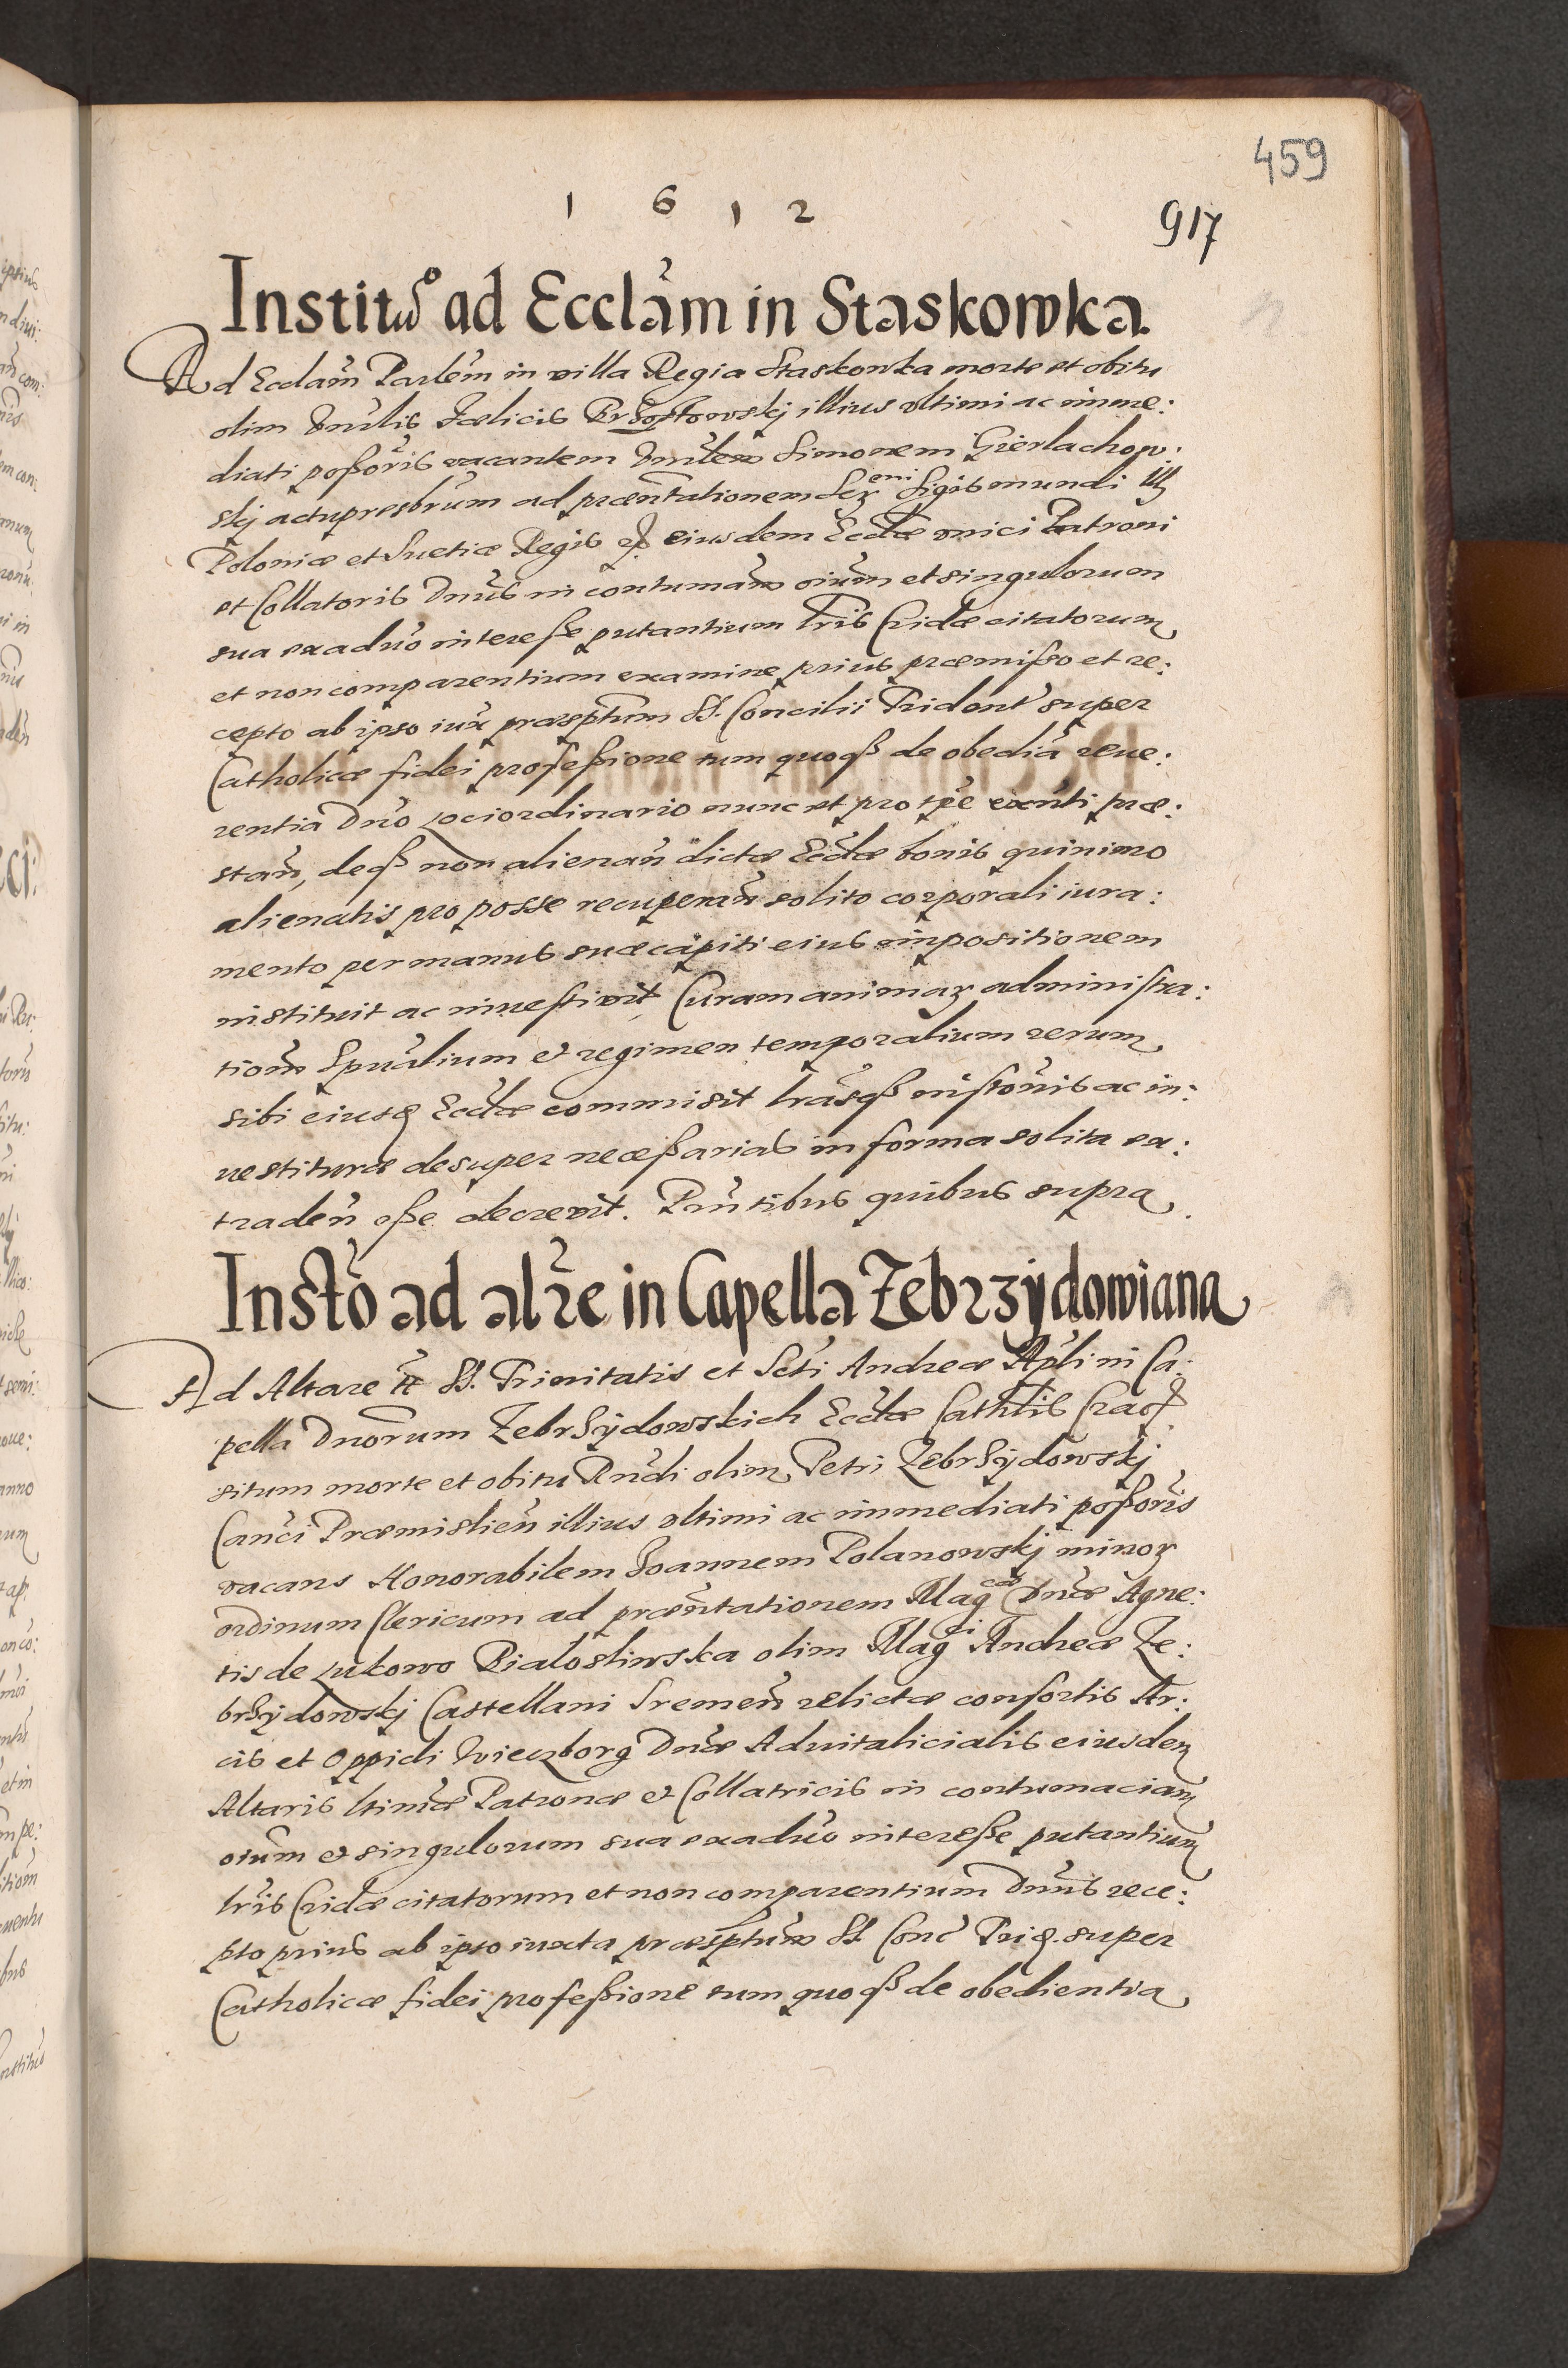 459
1 6 1 2
917
Institω° ad Ecclãm in Staskowka.
Ad Ecclãm Parlẽm in villa Regia Staskowka morte et obitu
olim Dnũlis Fœlicis illius ultimi ac imme:
diati poßoris vacantem Simonem Gierlachow:
skj actu presbrum ad præñtationem Serᵉⁿⁱ Sigismundi III
Poloniæ et Suetiæ Regis eiusdem Ecclæ unici Patroni
et Collatoris Dnũs in contumam̃ oium̃ et singulorum
sua exaduo intereße putantium lris Cridæ citatorum
et non comparentium examine prius præmißo et re:
cepto ab ipso iux præscptum SS. Concilii Trident̃ super
Catholicæ fidei profeßione tum quoqꝫ de obediã reue:
rentia Dño Lociordinario nunc et pro tp̃e exñti præ:
stañ, deqꝫ non alienañ dictæ Ecclæ bonis quinimo
alienatis pro posse recuperañ solito corporali iura:
mento per manus suæ capiti eius impositionem
instituit ac inuestivit Curam animaꝝ administra:
tiom̃ Spũalium et regimen temporalium rerum
sibi eiusꝗ Ecclæ commisit lrãsqꝫ instõnis ac in:
uestituræ desuper neceßarias in forma solita ex:
tradeñ eße decrevit. Pũntibus quibus supra.
Instõ ad alr̃e in Capella Zebrzÿdowiana
Ad Altare tt̃ SS. Trinitatis et Scti Andreæ Apli in Ca:
pella Dnõrum Zebrzÿdowskich Ecclæ Cathlis Crac̃
situm morte et obitu Rñdi olim Petri Zebrzÿdowskj
Cañci Præmislieñ illius ultimi ac immediati poßoris
vacans Honorabilem Joannem Polanowskj minoꝝ
ordinum Clericum ad præñtationem Magᶜᵃᵉ Dnæ Agne:
tis de Lukowo Bialosliwska olim Magᶜⁱ Andreæ Ze:
brzÿdowskj Castellani Sremeñ relictæ consortis Ar:
cis et Oppidi Wieczborg Dnæ Aduitalicialis eiusdem
Altaris ltimæ Patronæ et Collatricis in contumaciam
oium̃ et singulorum sua exaduo intereße putantium
lris Cridæ citatorum et non comparentium Dnũs rece:
pto prius ab ipso iuxta præscptum SS. Conc̃ Triꝗ. super
Catholicæ fidei profeßione tum quoqꝫ de obedientia